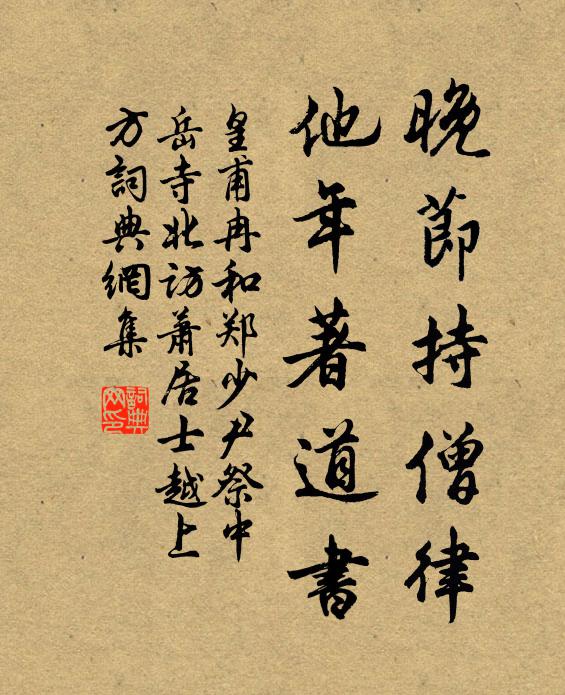 晚節持僧律
他年著道書
皇甫冉和郑少尹祭中
岳寺北訪萧居士越上
方詞典網集
詞典
网印